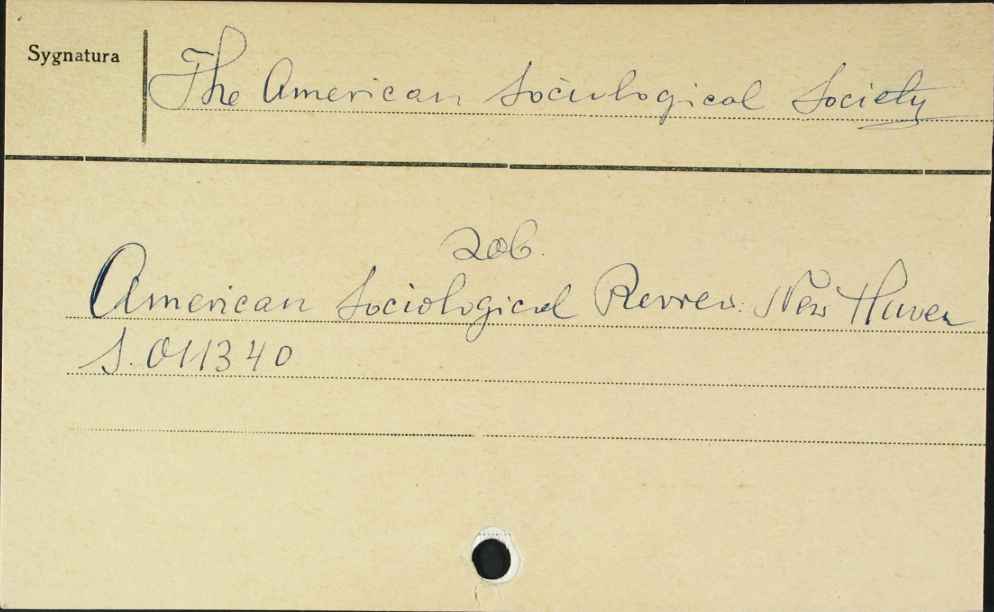 Sygnatura
The American Sociological Society
zob.
American Sociological Review. New Haven
S. 011340